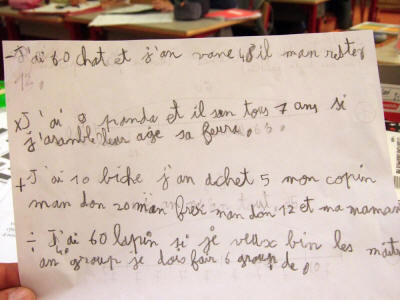 - J'ai 60 chat et j'an vane 48 il man rester
12.
x J'ai 9 panda et il son tous 7 ans si
j'asamble leur age sa fera 63.
+ J'ai 10 biche j'an achet 5 mon copin
man don 20 man frer man don 12 et ma maman
÷ J'ai 60 lapin si je veux bin les maitr
an group je dois fair 6 group de 10